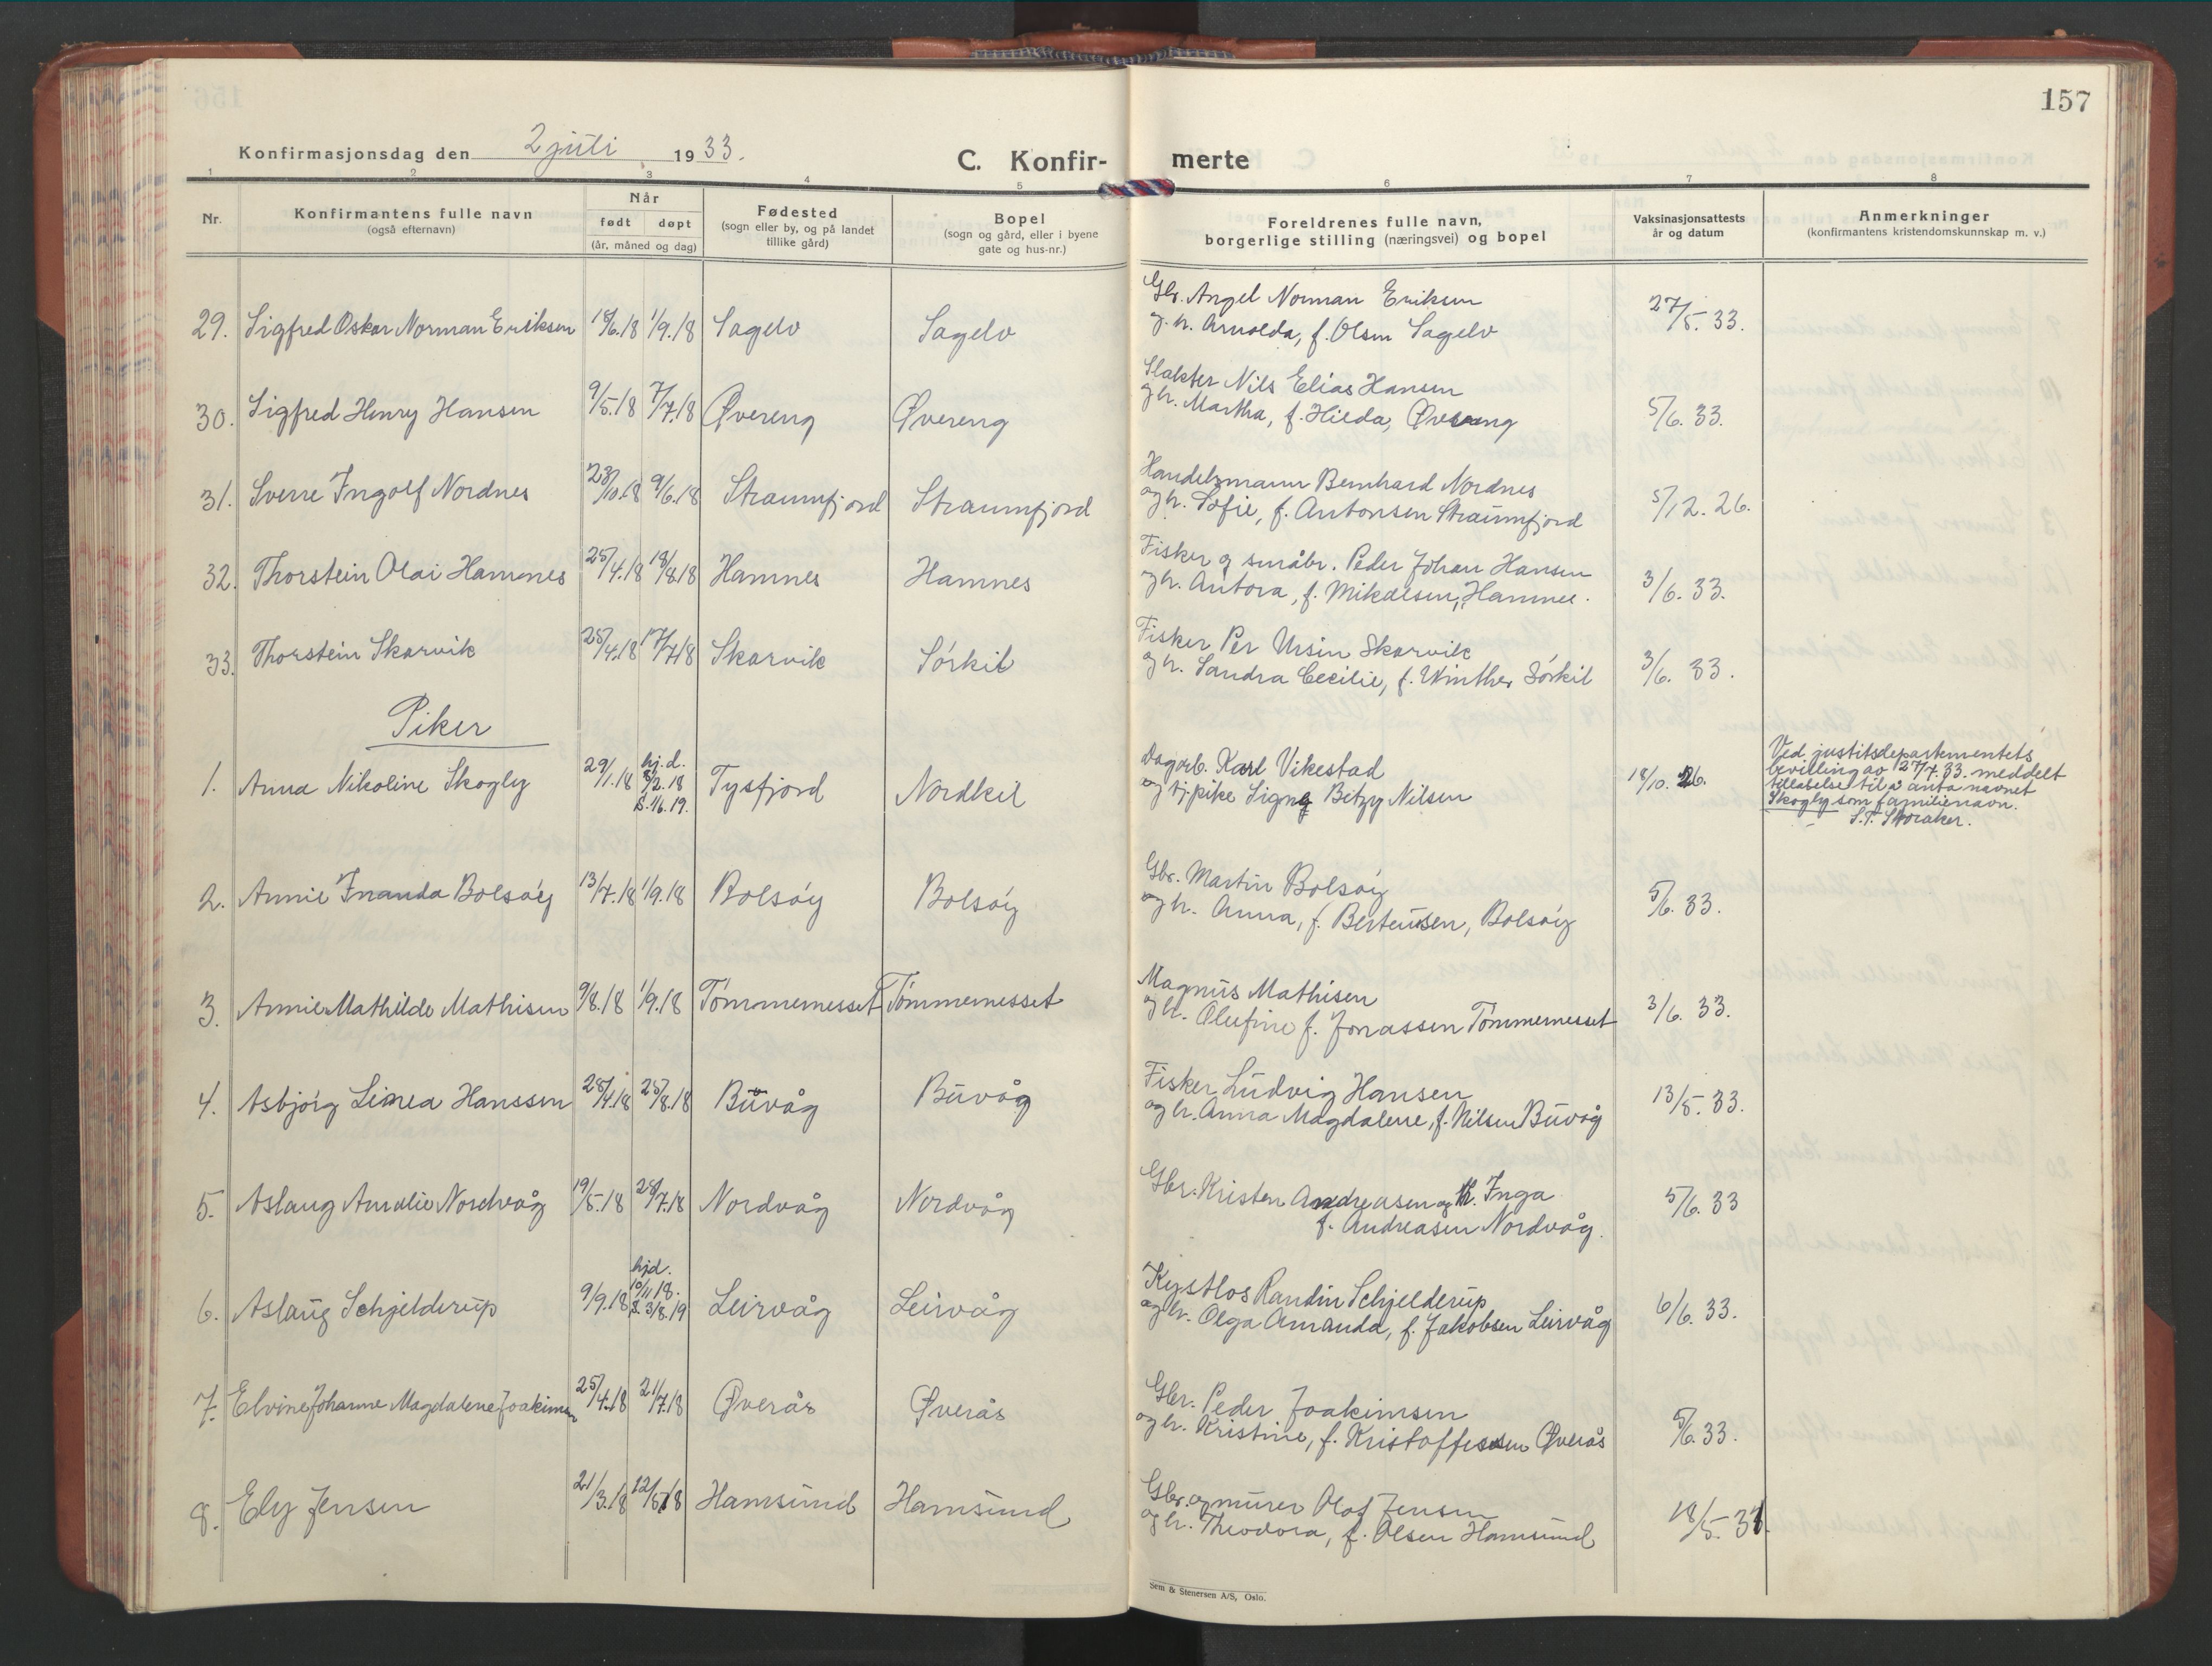 157
Konfirmasjonsdag den 2 juli 1933.
C. Konfir- merte
1 2 3 4 5 6 7 8
Nr.
Konfirmantens fulle navn
(også efternavn)
Når
født døpt
(år, måned og dag)
Fødested
(sogn eller by, og på landet
tillike gård)
Bopel
(sogn og gård, eller i byene
gate og hus-nr.)
Foreldrenes fulle navn,
borgerlige stilling (næringsvei) og bopel
Vaksinasjonsattests
år og datum
Anmerkninger
(konfirmantens kristendomskunnskap m. v.)
29. Sigfred Oskar Norman Eriksen 18/6.18 1/9.18 Sagelv Sagelv
Gbr. Angel Norman Eriksen
og h. Arnolda, f. Olsen Sagelv
27/5. 33.
30. Sigfred Henry Hansen 9/5.18 7/7.18 Øvereng Øvereng
Slakter Nils Elias Hansen
og h. Martha, f. Hilda, Øvereng
5/6. 33.
31. Sverre Ingolf Nordnes 9/6.18 Straumfjord Straumfjord
Handelsmann Bernhard Nordnes
og h. Sofie, f. Antonsen Straumfjord
5/12. 26.
32. Thorstein Olai Hamnes 25/4.18 18/8.18 Hamnes Hamnes
Fisker og småbr. Peder Johan Hansen
og h. Antora, f. Mikalsen, Hamnes.
3/6. 33.
33. Thorstein Skarvik 25/4.18 17/7.18 Skarvik Sørkil
Fisker Per Ursin Skarvik
og h. Sandra Cecilie, f. Winther Sørkil
3/6. 33.
Piker
1. Anna Nikoline Skogly 29/1.18 hj.d. 8/2.18 S. 1/6.19. Tysfjord Nordkil
Dagarb. Karl Vikestad
og tj.pike Signe Betzy Nilsen
18/10. 26.
Ved justitsdepartementets
bevilling av 27/4.33. meddelt
tillatelse til å anta navnet
Skogly som familienavn.
S.T. Storaker.
2. Annie Inanda Bolsøy 13/7.18 1/9.18 Bolsøy Bolsøy
Gbr. Martin Bolsøy
og h. Anna, f. Berteusen, Bolsøy
5/6. 33.
3. Annie Mathilde Mathisen 9/8.18 1/9.18 Tømmernesset Tømmernesset
Magnus Mathisen
og h. Olufine f. Jonassen Tømmernesset
3/6. 33.
4. Asbjørg Linea Hanssen 28/4.18 25/8.18 Buvåg Buvåg
Fisker Ludvig Hansen
og h. Anna Magdalene, f. Nilsen Buvåg
13/5. 33.
5. Aslaug Amalie Nordvåg 19/5.18 28/7.18 Nordvåg Nordvåg
Gbr. Kristen Andreasen og h. Inga
f. Andreasen Nordvåg.
5/6. 33
6. Aslaug Schjelderup 9/9.18 hjd. 10/11.18. S. 3/8.19 Leirvåg Leirvåg
Kystlos Randin Schjelderup
og h. Olga Amanda, f. Jakobsen Leirvåg
6/6. 33.
7. Elvine Johanne Magdalene Joakimsen 25/4.18 21/7.18 Øverås Øverås
Gbr. Peder Joakimsen
og h. Kristine, f. Kristoffersen Øverås
5/6. 33.
8. Ely Jensen 21/3.18 12/5.18 Hamsund Hamsund
Gbr. og murer Olaf Jensen
og h. Theodora, f. Olsen Hamsund
18/5. 31.
Sem & Stenersen A/S, Oslo.